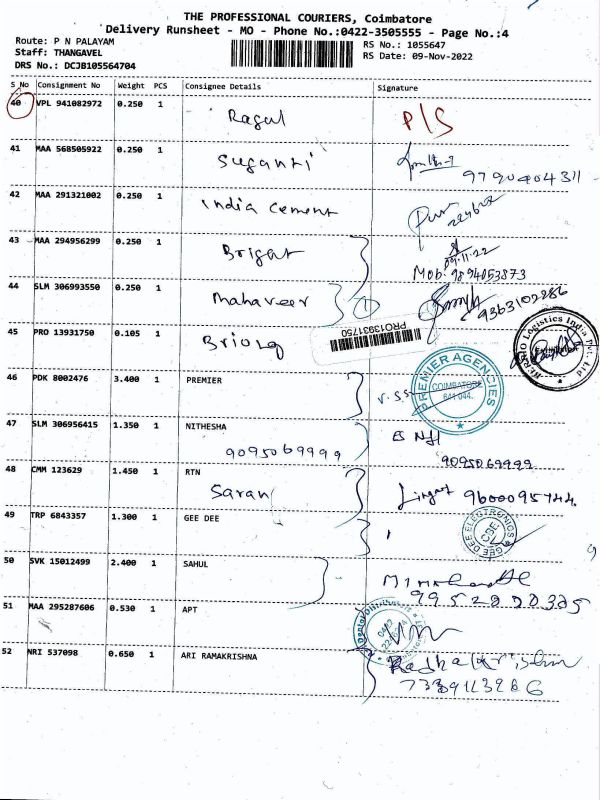 THE PROFESSIONAL COURIERS, Coimbatore
Delivery Runsheet - MO - Phone No.:0422-3505555 - Page No.:4
Route: P N PALAYAM
RS No.: 1055647
Staff: THANGAVEL
RS Date: 09-Nov-2022
DRS No.: DCJB105564704
S No Consignment No Weight PCS Consignee Details Signature
40 VPL 941082972 0.250 1 Ragul P/S
41 MAA 568505922 0.250 1 Suganti
9790404311
42 MAA 291321002 0.250 1 India Cement
43 MAA 294956299 0.250 1 Brigat 09.11.22
Mob: 9894053873
44 SLM 306993550 0.250 1 Mahaveer 1 9363102286
45 PRO 13931750 0.105 1 PRO13931750
46 PDK 8002476 3.400 1 PREMIER
PREMIER AGENCIES
COIMBATORE
641 044.
47 SLM 306956415 1.350 1 NITHESHA
9095069999 9095069999
48 CMM 123629 1.450 1 RTN
Saran 9600095744
49 TRP 6843357 1.300 1 GEE DEE
GEE DEE ELECTRONICS
CBE
50 SVK 15012499 2.400 1 SAHUL
51 MAA 295287606 0.530 1 APT
52 NRI 537098 0.650 1 ARI RAMAKRISHNA Radhakrishnan